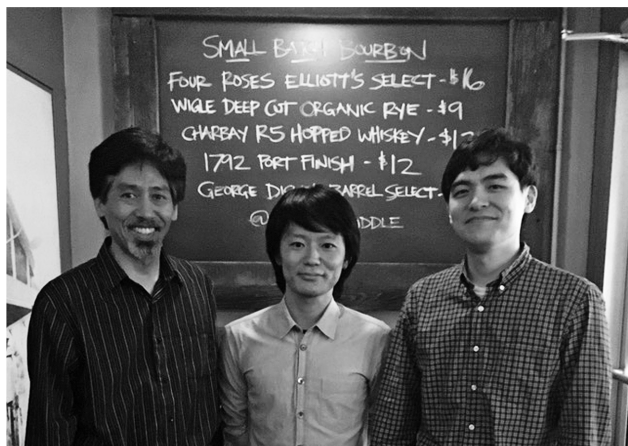 SMALL BARREL BOURBON
FOUR ROSES ELLIOTT'S SELECT - $16
WIGLE DEEP CUT ORGANIC RYE - $9
CHARBAY R5 HOPPED WHISKEY - $1
1792 PORT FINISH - $12
GEORGE BARREL SELECT -
@